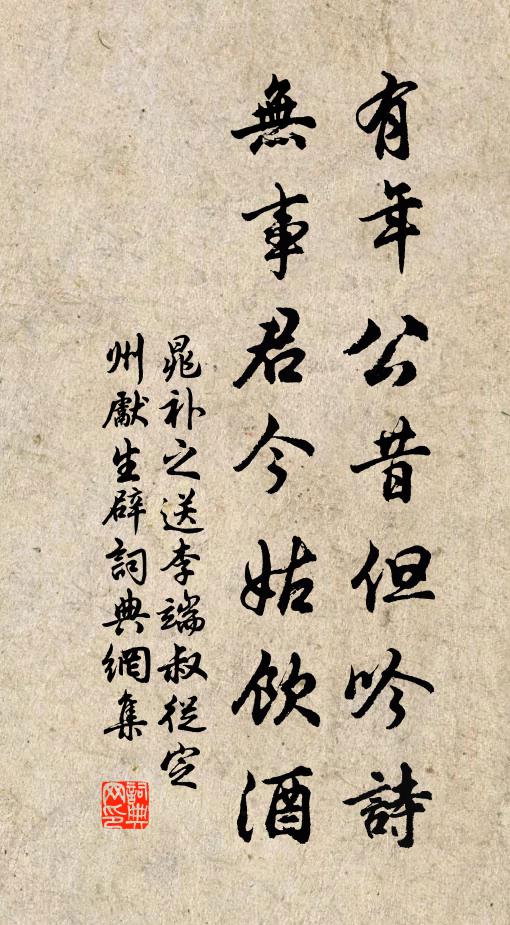 有年公昔但吟詩
無事君今姑飲酒
晁補之送李端叔從定
州獻生辟詞典網集
詞典网印